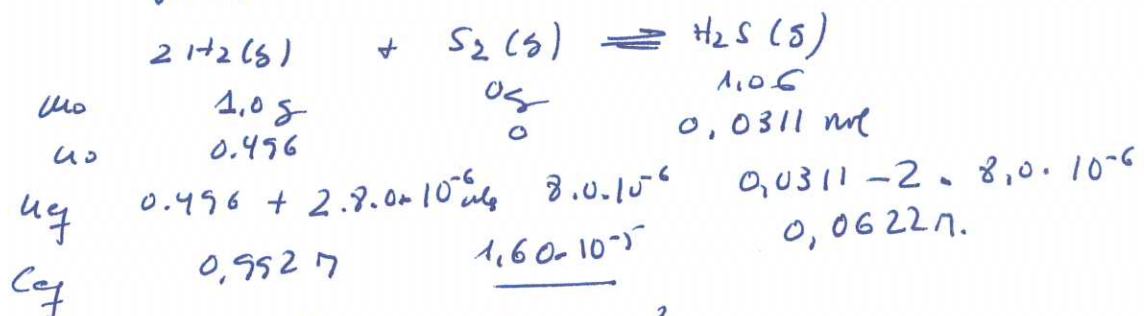 2 H2(g) + S2 (g) ⇌ H2S (g)
mo 1,0 g 0g 1,06
no 0.496 0 0,0311 mol
neq 0.496 + 2.8.0.10⁻⁶ mols 8.0.10⁻⁶ 0,0311 - 2 . 8,0. 10⁻⁶
Ceq 0,992 M 1,60.10⁻⁵ 0,0622 M.